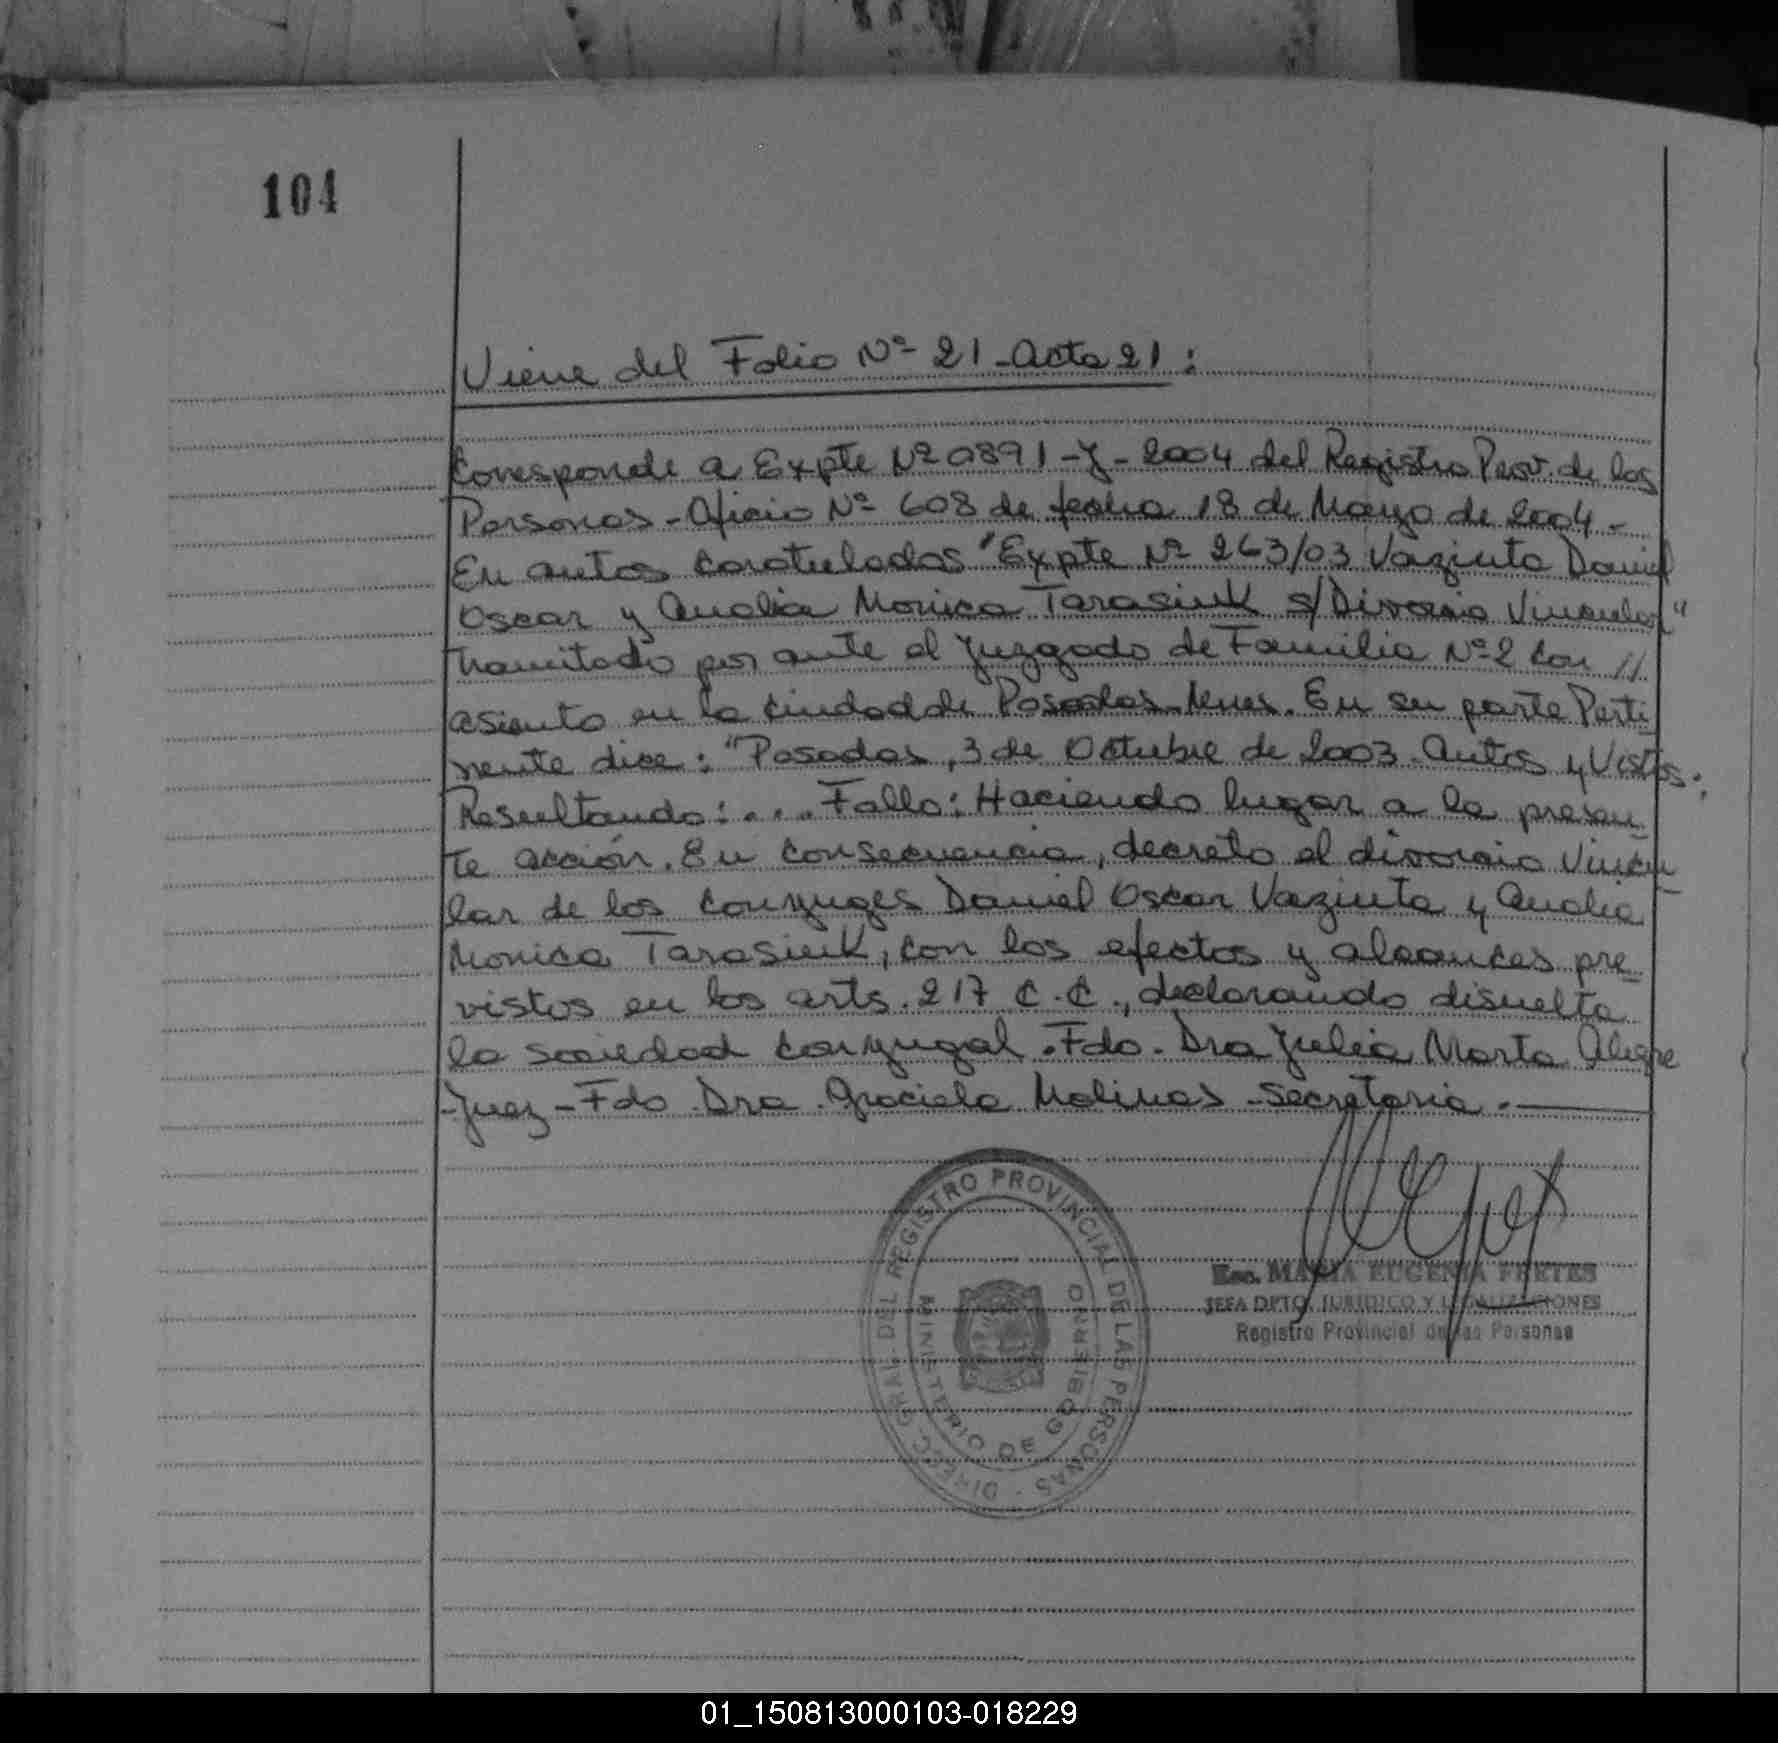 104
Viene del Folio Nº 21 - Acta 21:
Corresponde a Expte Nº 0891 - J - 2004 del Registro Prov. de las
Personas - Oficio Nº 608 de fecha 18 de Marzo de 2004 -
En autos caratulados "Expte Nº 263/03 Vaziuta Daniel
Oscar y Analia Monica Tarasiuk s/Divorcio Vincular"
tramitado por ante el Juzgado de Familia Nº 2 con //
asiento en la ciudad de Posadas - Mnes. En su parte Perti
nente dice: "Posadas, 3 de Octubre de 2003. Autos y Vistos:
Resultando: .... Fallo: Haciendo lugar a la presen_
te acción. En consecuencia, decreto el divorcio Vincu_
lar de los conyuges Daniel Oscar Vaziuta y Analia
Monica Tarasiuk, con los efectos y alcances pre_
vistos en los arts. 217 C.C., declarando disuelta
la sociedad conyugal. Fdo. Dra Julia Marta Alegre
- Juez - Fdo. Dra. Graciela Molinas - Secretaria. -
DIREC. GRAL. DEL REGISTRO PROVINCIAL DE LAS PERSONAS -
MINISTERIO DE GOBIERNO
Esc. MARIA EUGENIA FRETES
JEFA DPTO. JURIDICO Y LEGALIZACIONES
Registro Provincial de las Personas
01_150813000103-018229